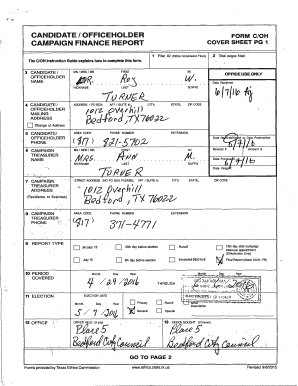 CANDIDATE / OFFICEHOLDER
CAMPAIGN FINANCE REPORT
FORM C/OH
COVER SHEET PG 1
The C/OH Instruction Guide explains how to complete this form.
1 Filer ID
2 Total pages filed:
3 CANDIDATE / OFFICEHOLDER NAME
MS / MRS / MR FIRST MI
DR. Roy W.
NICKNAME LAST SUFFIX
TURNER
OFFICE USE ONLY
Date Received
6/7/16
4 CANDIDATE / OFFICEHOLDER MAILING ADDRESS
Change of Address
ADDRESS / PO BOX; APT / SUITE #; CITY; STATE; ZIP CODE
1012 Overhill
Bedford, TX 76022
5 CANDIDATE / OFFICEHOLDER PHONE
AREA CODE PHONE NUMBER EXTENSION
(817) 821-5702
6 CAMPAIGN TREASURER NAME
MS / MRS / MR FIRST MI
MRS. Ann M.
NICKNAME LAST SUFFIX
TURNER
7 CAMPAIGN TREASURER ADDRESS
(Residence or Business)
STREET ADDRESS (NO PO BOX PLEASE); APT / SUITE #; CITY; STATE; ZIP CODE
1012 Overhill
Bedford, TX 76022
8 CAMPAIGN TREASURER PHONE
AREA CODE PHONE NUMBER EXTENSION
(817) 371-4771
9 REPORT TYPE
January 15
30th day before election
Runoff
15th day after campaign treasurer appointment
(Officeholder Only)
July 15
8th day before election
Exceeded $500 limit
Final Report (Attach C/OH - FR)
10 PERIOD COVERED
Month Day Year
4 / 29 / 2016
THROUGH
Month Day Year
11 ELECTION
ELECTION DATE
Month Day Year
5 / 7 / 2016
Primary
Runoff
General
Special
12 OFFICE
OFFICE HELD (if any)
Place 5
Bedford City Council
13 OFFICE SOUGHT (if known)
Place 5
Bedford City Council
GO TO PAGE 2
Forms provided by Texas Ethics Commission
www.ethics.state.tx.us
Revised 9/8/2015